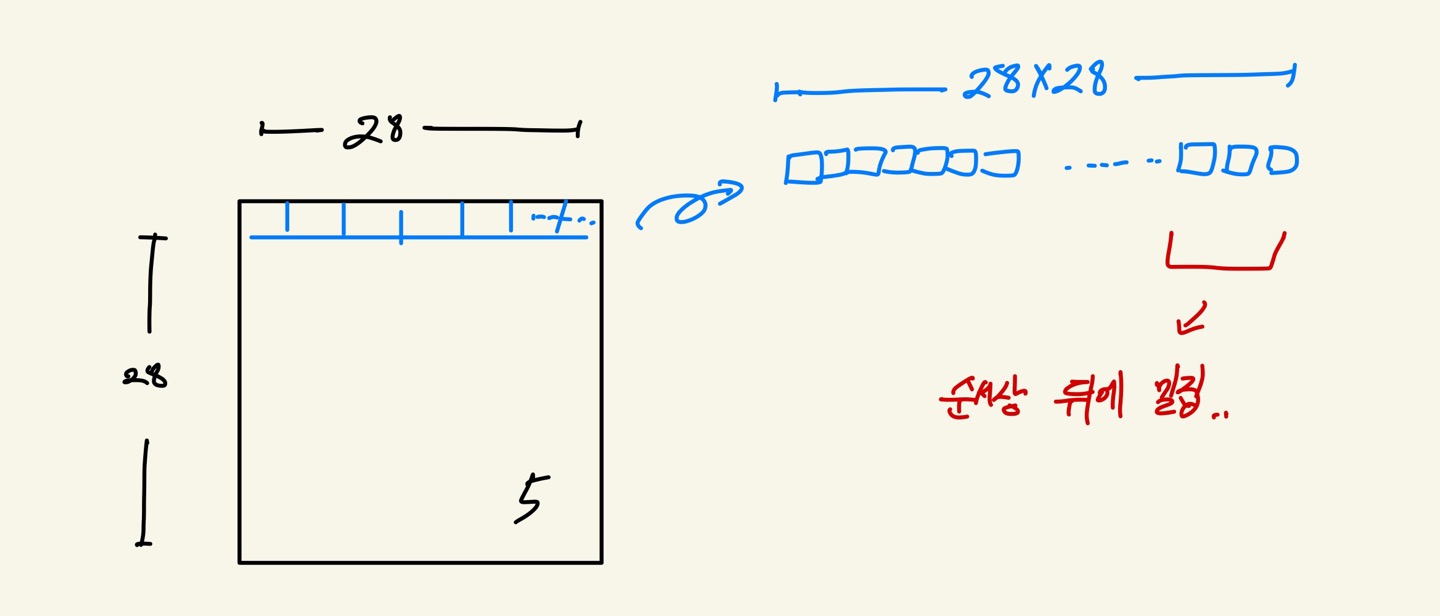 28×28
28
28
5
순서상 뒤에 밀집..